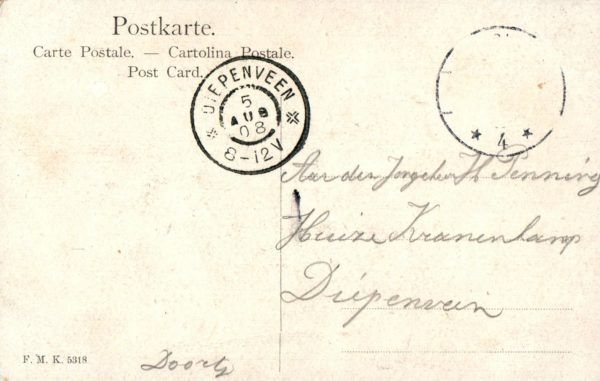 Postkarte.
Carte Postale. — Cartolina Postale.
Post Card.
DIEPENVEEN
5
AUG
08
8-12V
4
Aan den H. Penning
Huize Kranenkamp
Diepenvein
F. M. K. 5318